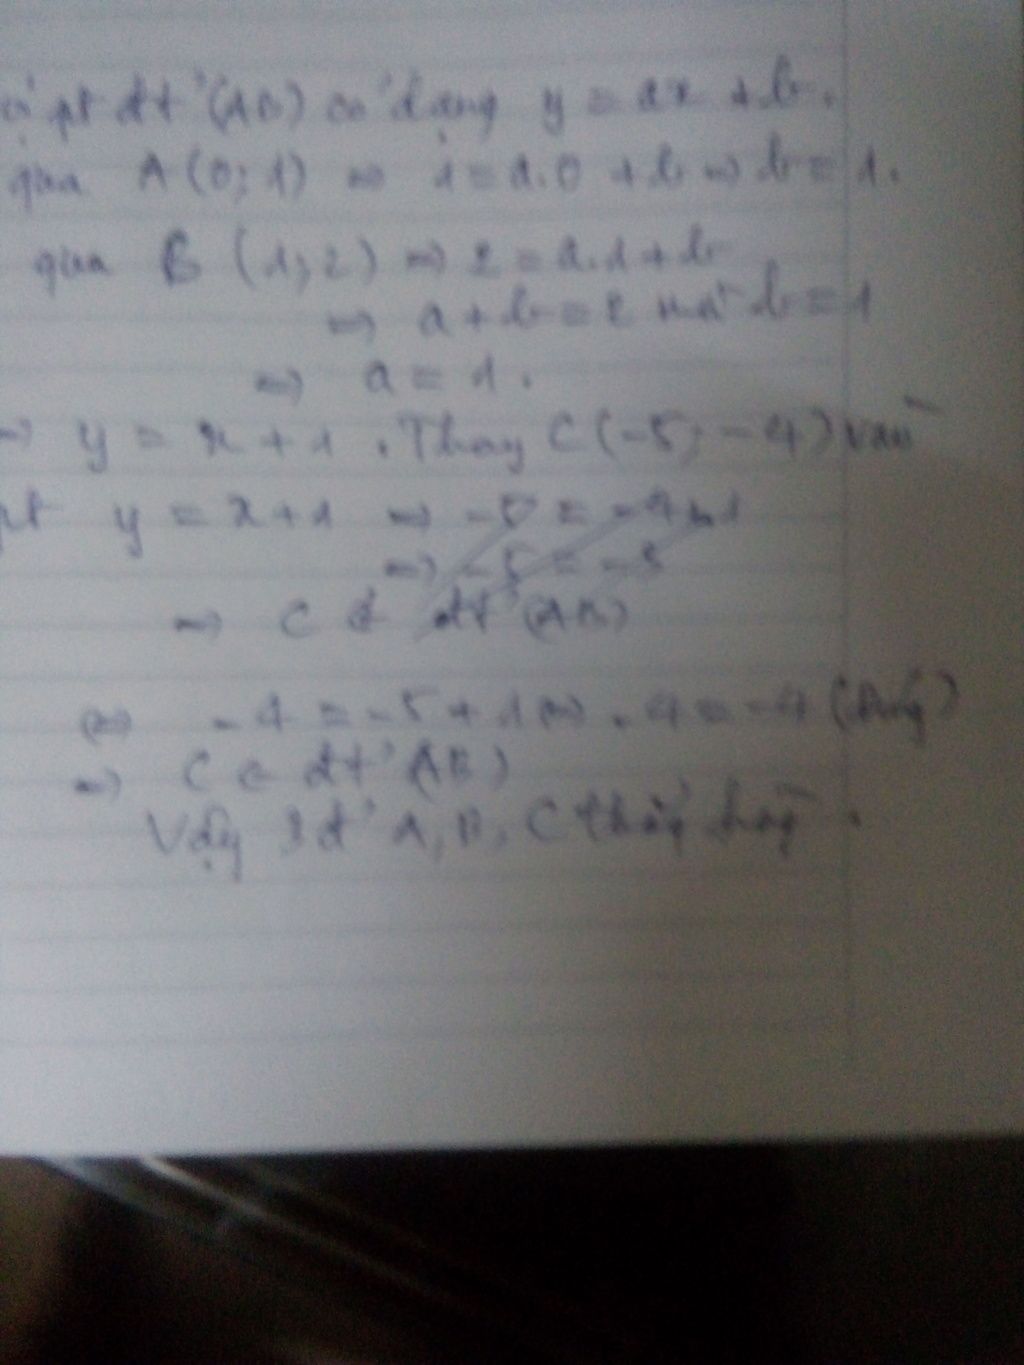 pt đt' (AB) có dạng y = ax + b.
qua A (0; 1) => 1 = a.0 + b => b = 1.
qua B (1; 2) => 2 = a.1 + b
=> a + b = 2 mà b = 1
=> a = 1.
=> y = x + 1. Thay C (-5; -4) vào
pt y = x + 1 => -5 = -4 + 1
=> -5 = -3
=> C ∉ đt' (AB)
<=> -4 = -5 + 1 <=> -4 = -4 (Đúng)
=> C ∈ đt' (AB)
Vậy 3 đ' A, B, C thẳng hàng.